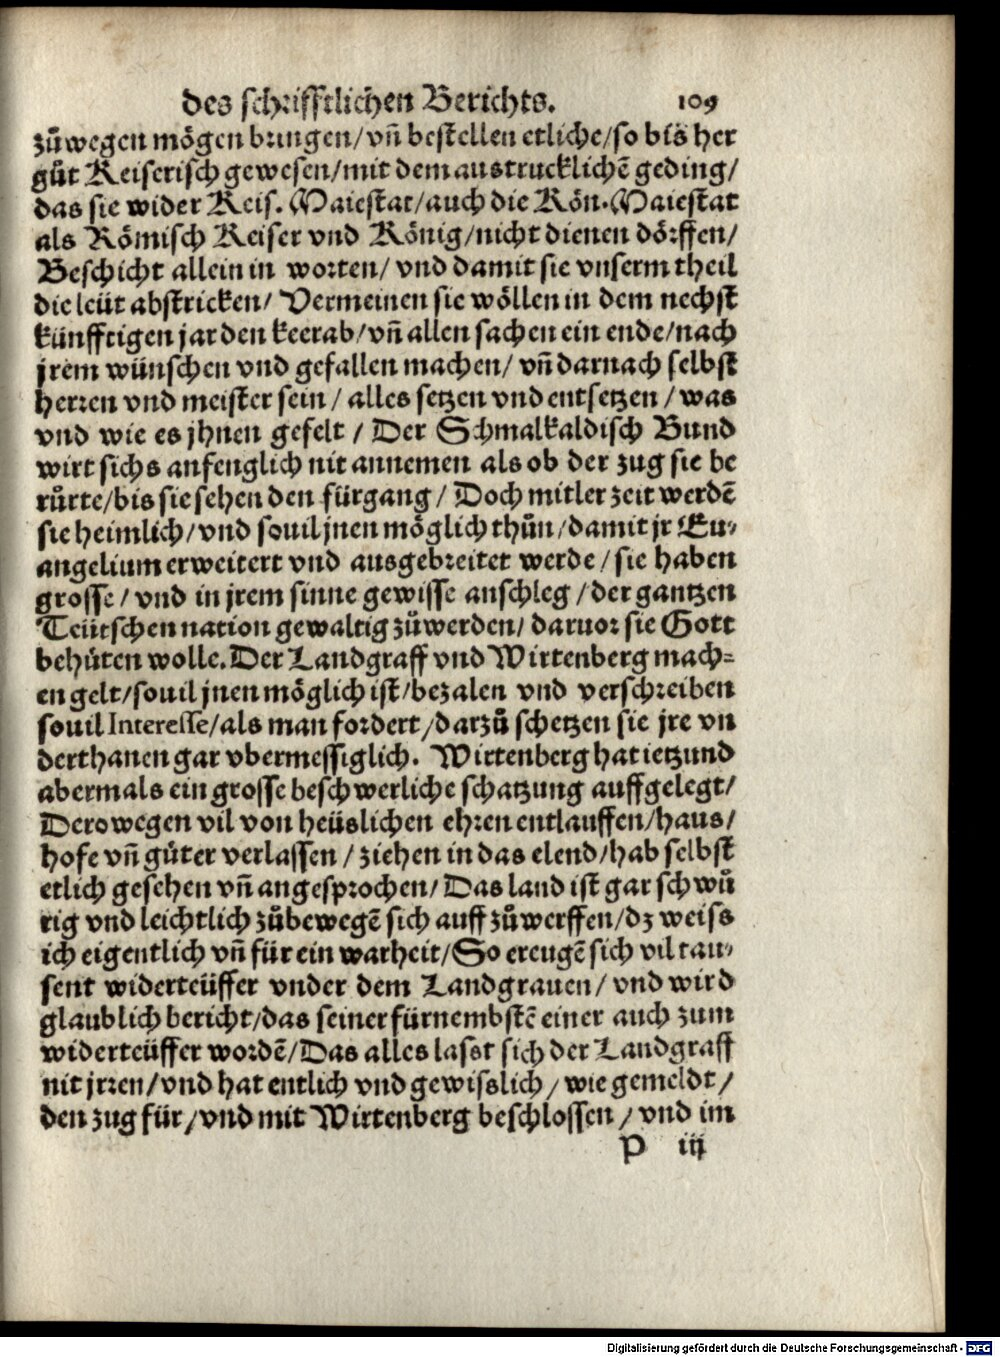 des schrifftlichen Berichts. 109
zůwegen mögen bringen/ vn̄ bestellen etliche/ so bis her
gůt Keiserisch gewesen/ mit dem austrucklichē geding/
das sie wider Keis. Maiestat/ auch die Kön. Maiestat
als Römisch Keiser vnd König/ nicht dienen dörffen/
Beschicht allein in worten/ vnd damit sie vnserm theil
die leüt abstricken/ Vermeinen sie wöllen in dem nechst
künfftigen jar den keerab/ vn̄ allen sachen ein ende/ nach
jrem wünschen vnd gefallen machen/ vn̄ darnach selbst
herren vnd meister sein/ alles setzen vnd entsetzen/ was
vnd wie es jhnen gefelt/ Der Schmalkaldisch Bund
wirt sichs anfenglich nit annemen als ob der zug sie be
růrte/ bis sie sehen den fürgang/ Doch mitler zeit werdē
sie heimlich/ vnd souil jnen möglich thůn/ damit jr Eu⸗
angelium erweitert vnd ausgebreitet werde/ sie haben
grosse/ vnd in jrem sinne gewisse anschleg/ der gantzen
Teütschen nation gewaltig zůwerden/ daruor sie Gott
behüten wolle. Der Landgraff vnd Wirtenberg mach⸗
en gelt/ souil jnen möglich ist/ bezalen vnd verschreiben
souil Interesse/ als man fordert/ darzů schetzen sie jre vn
derthanen gar vbermessiglich. Wirtenberg hat ietzund
abermals ein grosse beschwerliche schatzung auffgelegt/
Derowegen vil von heüslichen ehren entlauffen/ haus/
hofe vn̄ güter verlassen/ ziehen in das elend/ hab selbst
etlich gesehen vn̄ angesprochen/ Das land ist gar schwů
rig vnd leichtlich zůbewegē sich auff zůwerffen/ dz weiss
ich eigentlich vn̄ für ein warheit/ So ereugē sich vil tau⸗
sent widerteüffer vnder dem Landgrauen/ vnd wird
glaublich bericht/ das seiner fürnembstē einer auch zum
widerteüffer wordē/ Das alles lasst sich der Landgraff
nit jrren/ vnd hat entlich vnd gewisslich/ wie gemeldt/
den zug für/ vnd mit Wirtenberg beschlossen/ vnd im
P iij
Digitalisierung gefördert durch die Deutsche Forschungsgemeinschaft - DFG